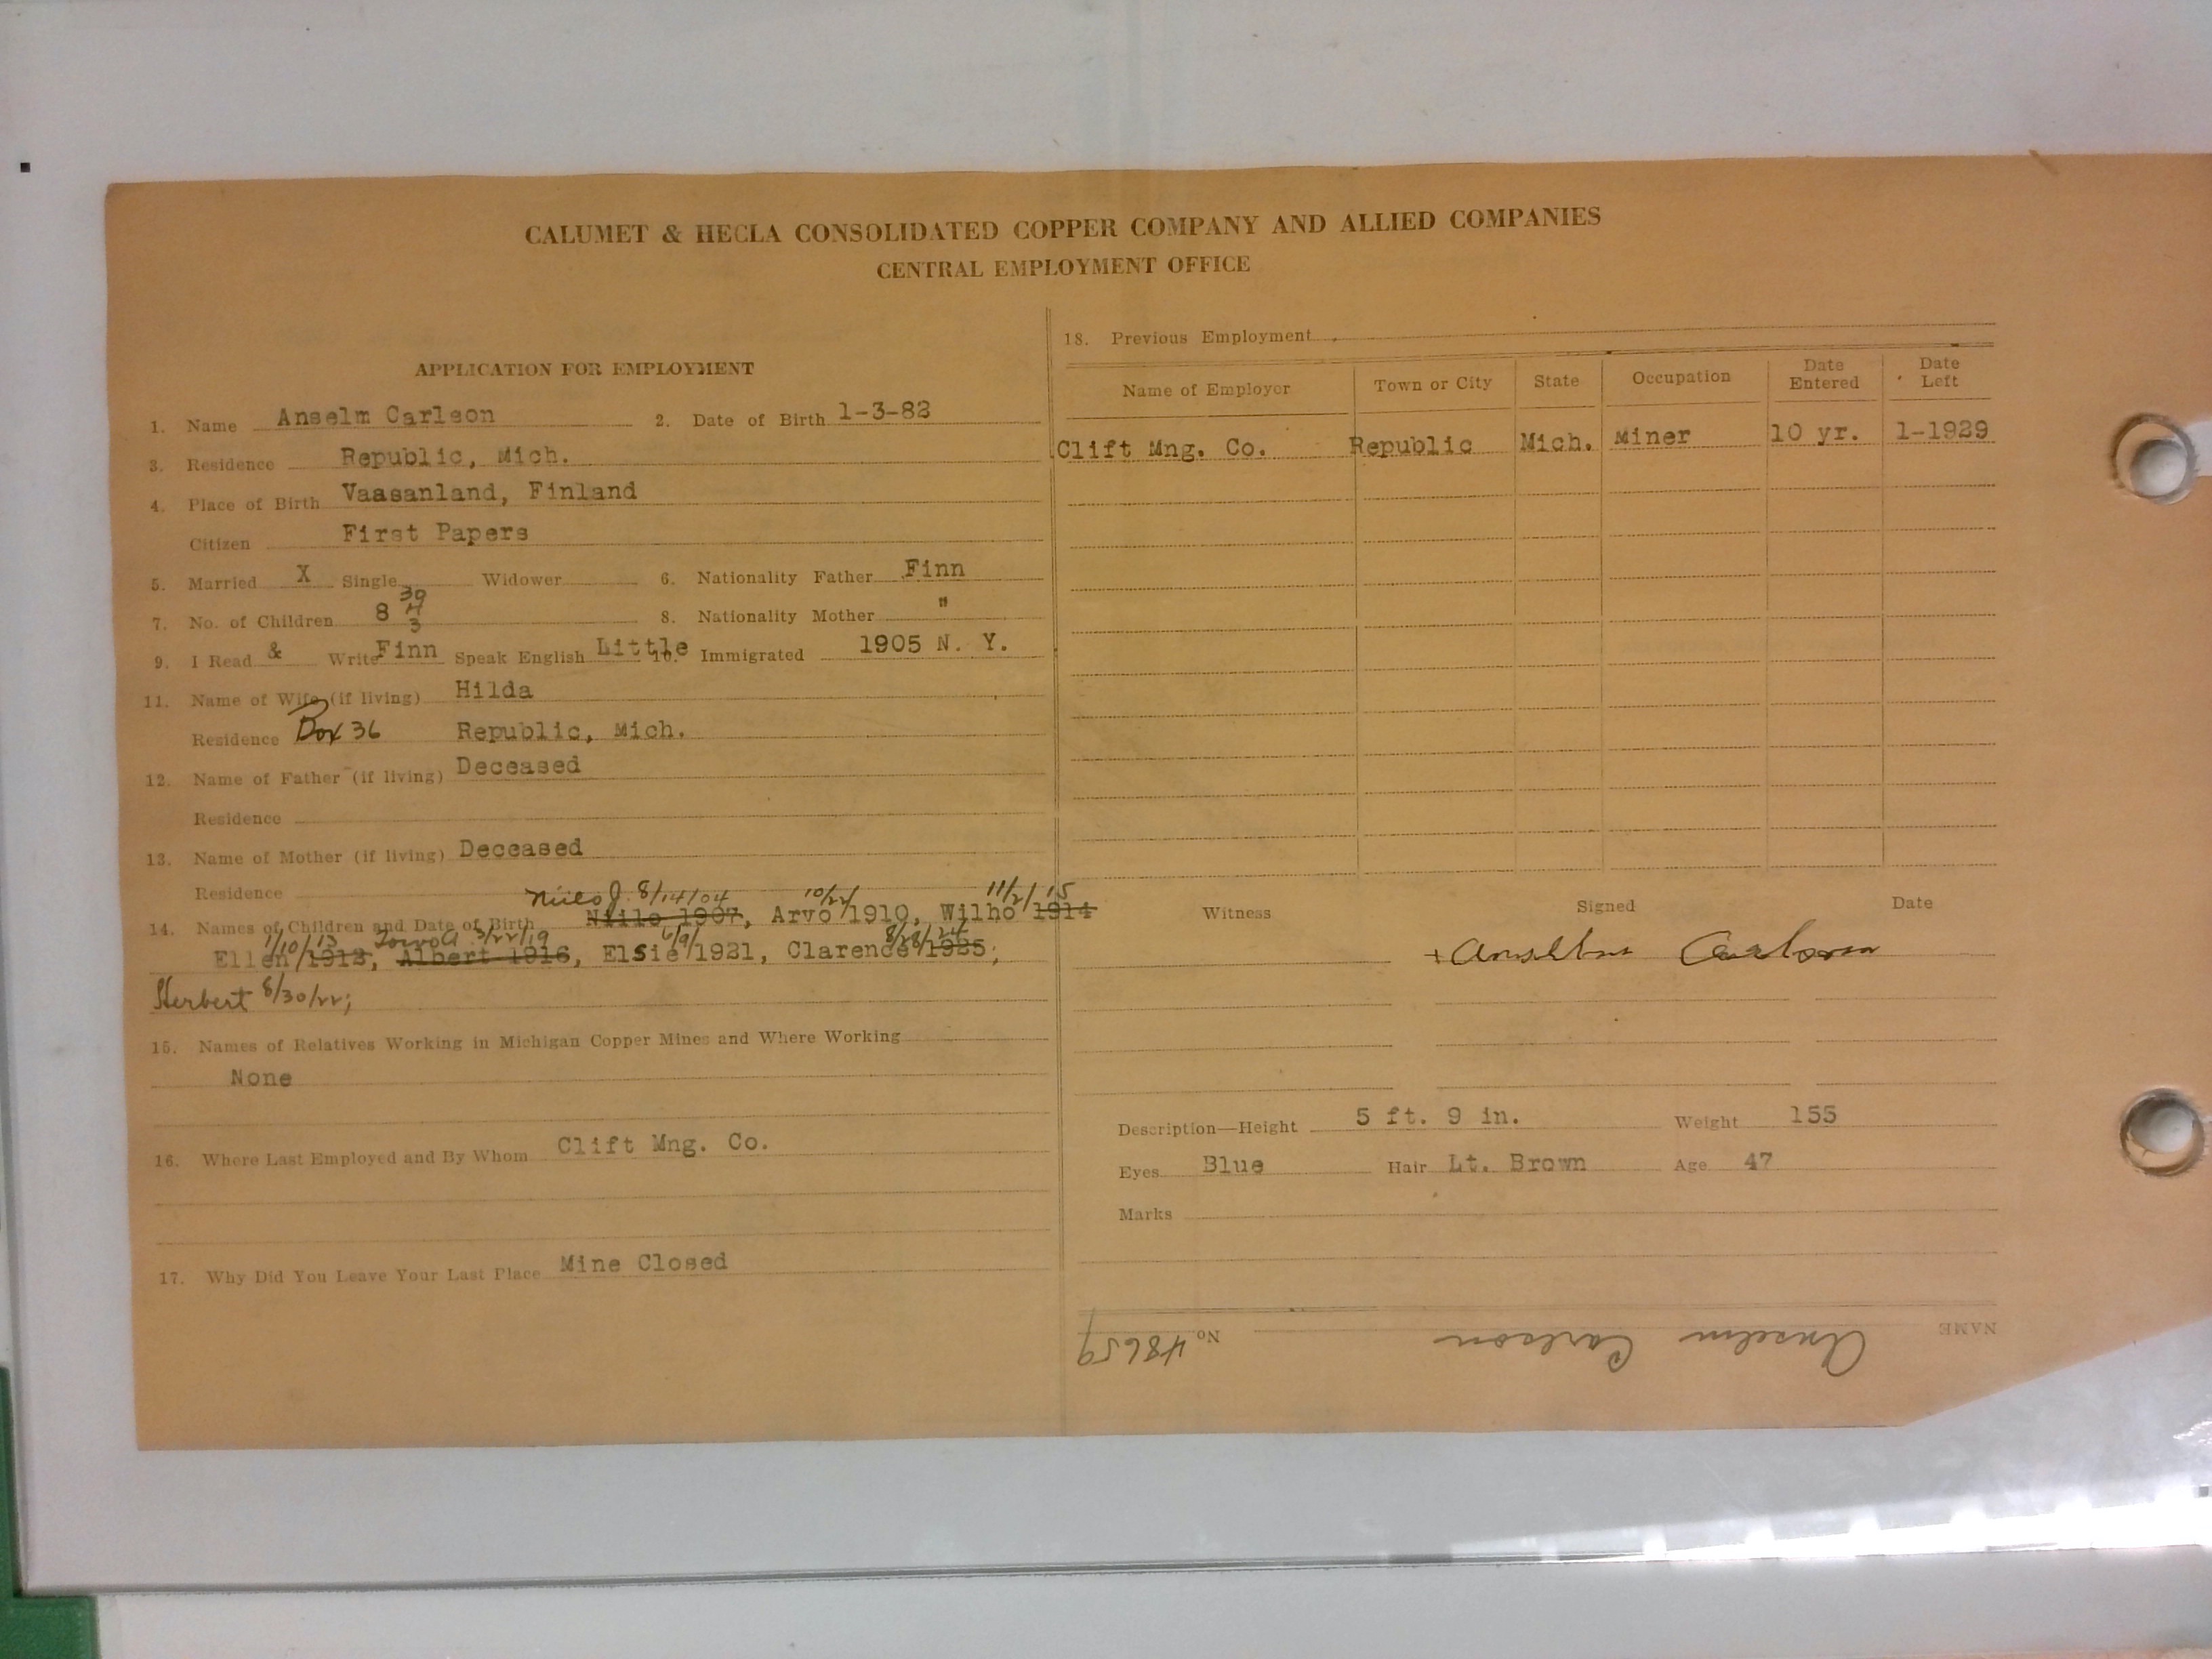 CALUMET & HECLA CONSOLIDATED COPPER COMPANY AND ALLIED COMPANIES
CENTRAL EMPLOYMENT OFFICE
APPLICATION FOR EMPLOYMENT
1. Name Anselm Carlson 2. Date of Birth 1-3-82
3. Residence Republic, Mich.
4. Place of Birth Vaasanland, Finland
Citizen First Papers
5. Married X Single Widower 6. Nationality Father Finn
7. No. of Children 8 8. Nationality Mother "
9. I Read & Write Finn Speak English Little 10. Immigrated 1905 N. Y.
11. Name of Wife (if living) Hilda
Residence Box 36 Republic, Mich.
12. Name of Father (if living) Deceased
Residence
13. Name of Mother (if living) Deceased
Residence
J. 8/14/04 10/22/ 11/2/15
14. Names of Children and Date of Birth Niilo 1907, Arvo 1910, Wilho 1914
1/10/13 Toivo A 3/22/19 6/9/ 8/28/24
Ellen 1912, Albert 1916, Elsie 1921, Clarence 1925;
Herbert 8/30/22;
15. Names of Relatives Working in Michigan Copper Mines and Where Working
None
16. Where Last Employed and By Whom Clift Mng. Co.
17. Why Did You Leave Your Last Place Mine Closed
18. Previous Employment
Name of Employer Town or City State Occupation Date Entered Date Left
Clift Mng. Co. Republic Mich. Miner 10 yr. 1-1929
Witness Signed Date
Carlson
Description—Height 5 ft. 9 in. Weight 155
Eyes Blue Hair Lt. Brown Age 47
Marks
NAME Anselm Carlson No. 48659